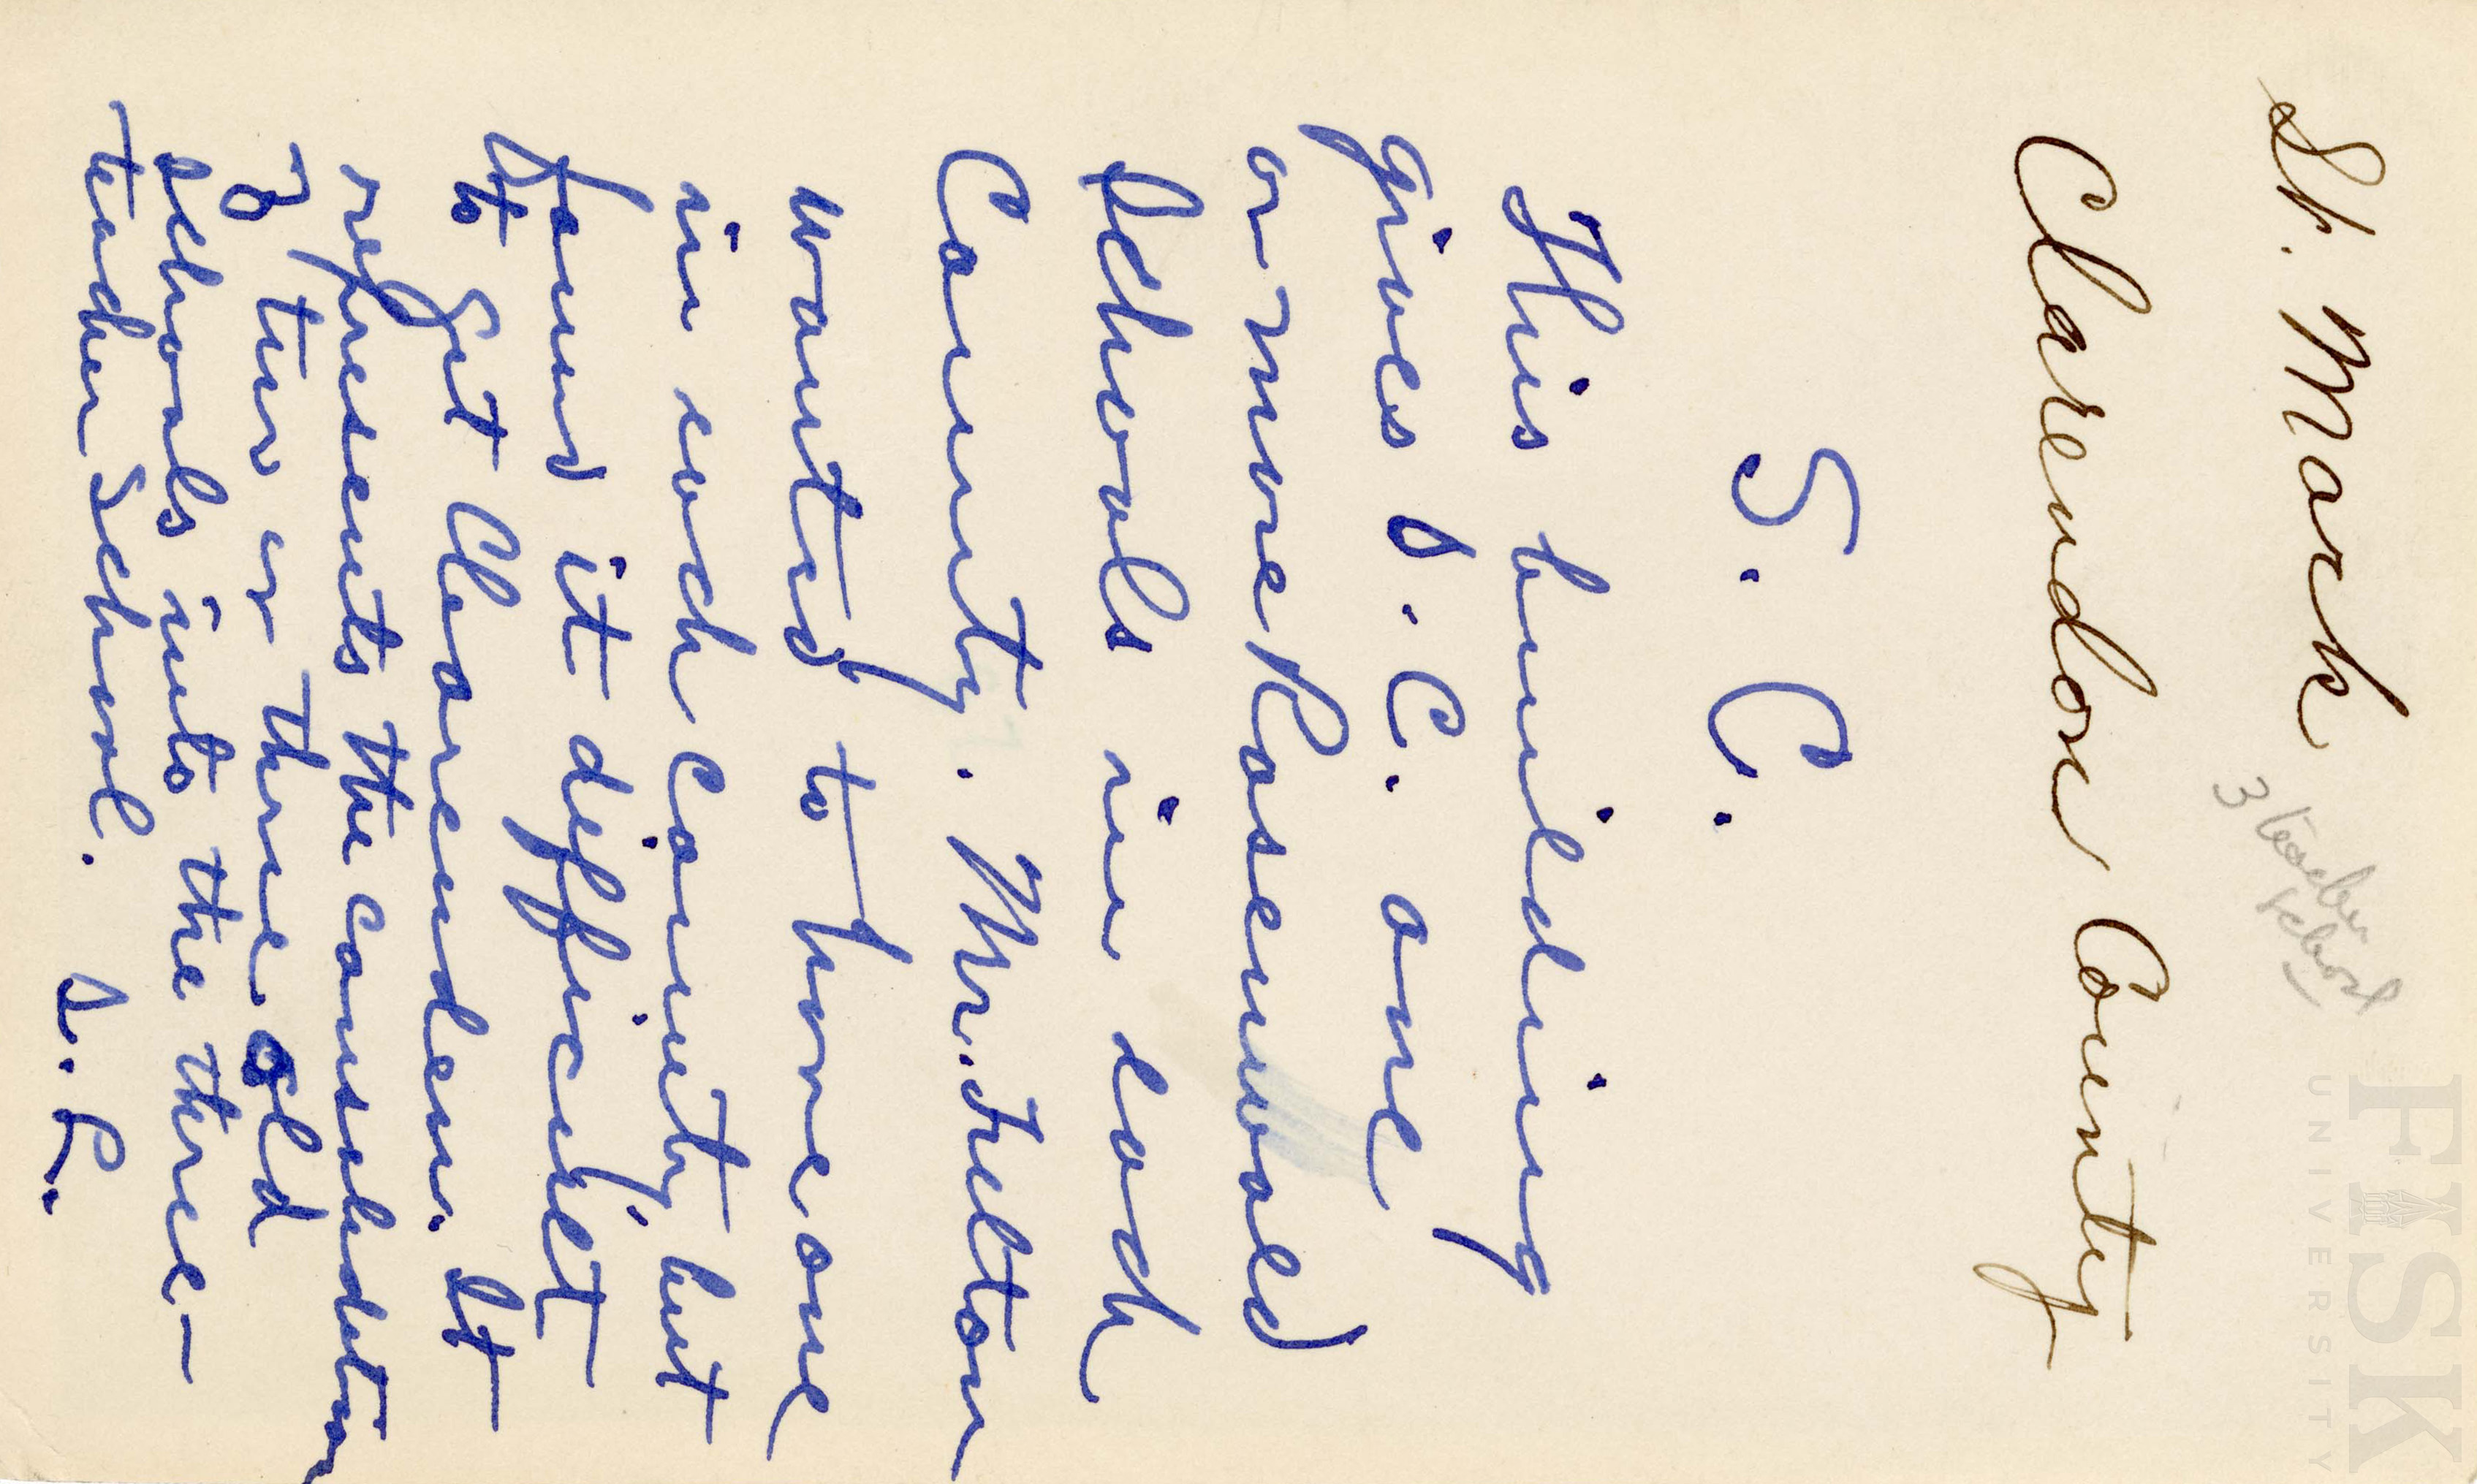 St. Mark
3 teacher
school
Clarendon County
S. C.
This building
gives S. C. one
or more Rosenwald
Schools in each
County. Mr. Fulton
wanted to have one
in each county, but
found it difficult
to get Clarendon. It
represents the consolidation
of two or three old
schools into the three-
teacher school.
FISK
UNIVERSITY